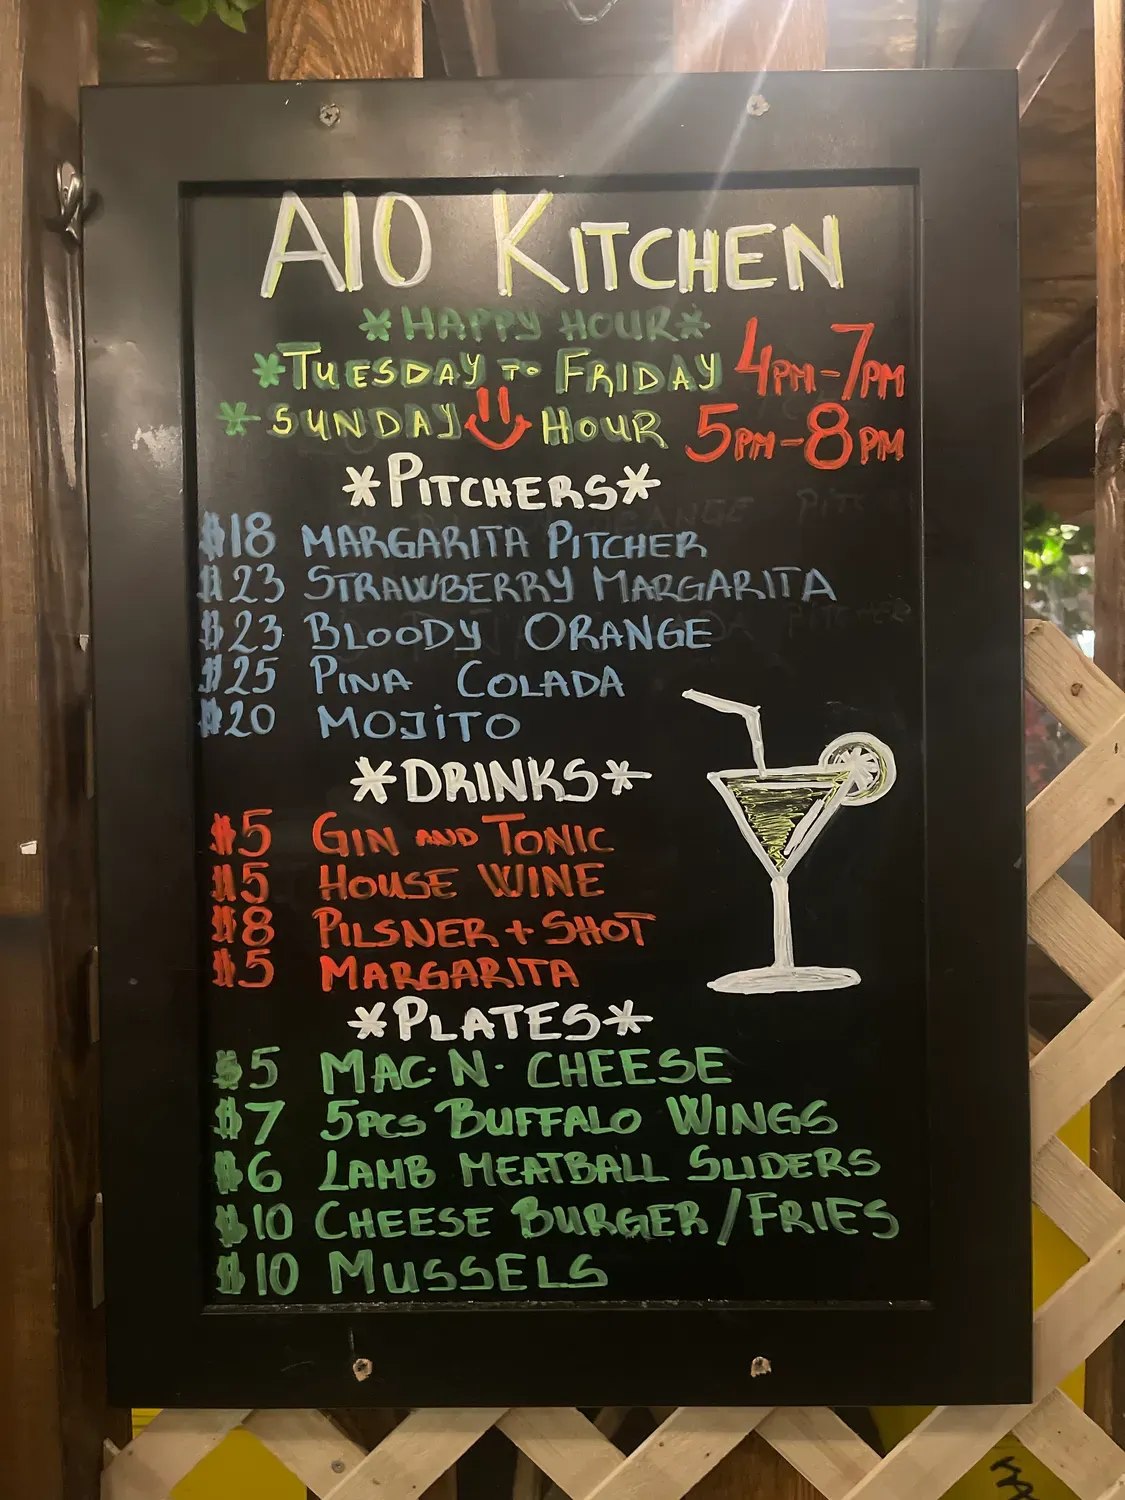 AIO KITCHEN
*HAPPY HOUR*
*TUESDAY TO FRIDAY 4PM-7PM
*SUNDAY HOUR 5PM-8PM
*PITCHERS*
$18 MARGARITA PITCHER
$23 STRAWBERRY MARGARITA
$23 BLOODY ORANGE
$25 PINA COLADA
$20 MOJITO
*DRINKS*
$5 GIN AND TONIC
$5 HOUSE WINE
$8 PILSNER + SHOT
$5 MARGARITA
*PLATES*
$5 MAC·N· CHEESE
$7 5PCS BUFFALO WINGS
$6 LAMB MEATBALL SLIDERS
$10 CHEESE BURGER/FRIES
$10 MUSSELS